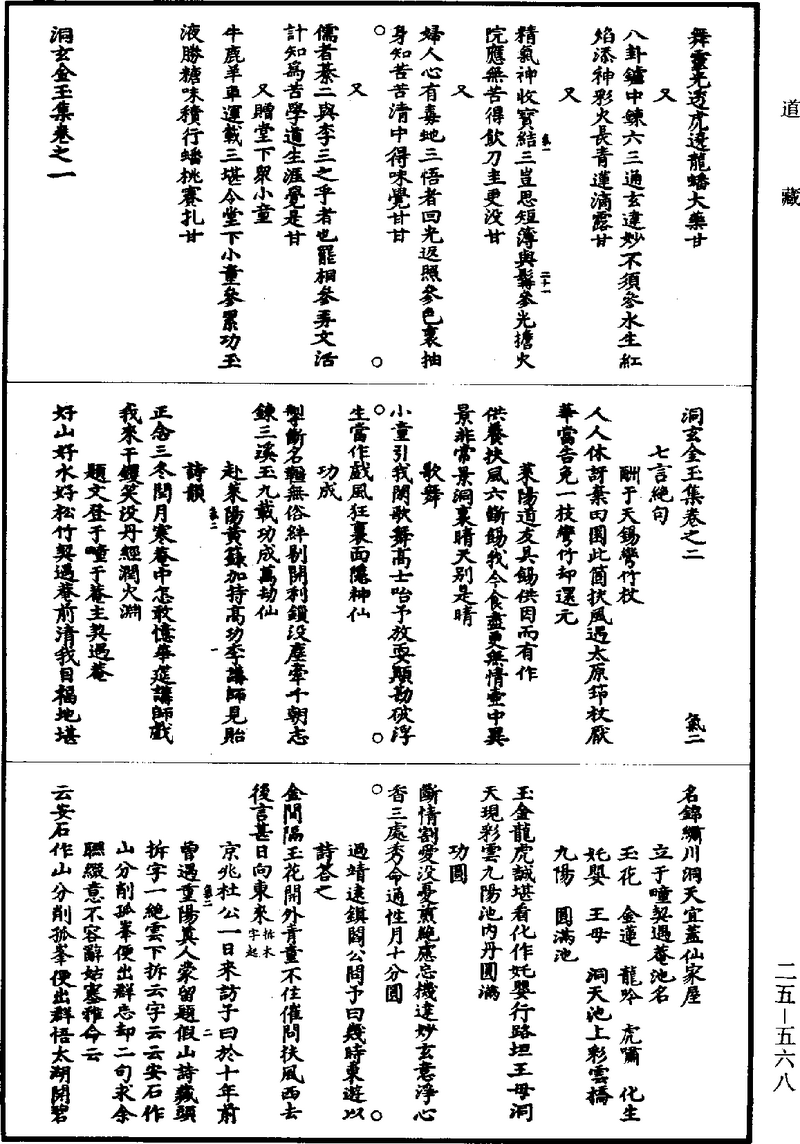 道藏
舞靈光透虎遶龍蟠大藥甘
又
八卦鑪中鍊六三通玄違妙不須參水生紅
焰添神彩火長青蓮滴露甘
又
精氣神收寶結三豈思短簿與髯參光擔火
院應無苦得飲刀圭更没甘
又
婦人心有毒地三悟者回光返照參色裏抽
身知苦苦清中得味覺甘甘
又
儒者綦二與李三之乎者也罷相參弄文活
計知為苦學道生涯覺是甘
又贈堂下衆小童
牛鹿羊車運載三堪令堂下小童參累功玉
液勝糖味積行蟠桃賽扎甘
洞玄金玉集卷之一
洞玄金玉集卷之二
氣二
七言絕句
酬于天錫彎竹杖
人人休訝棄田園此箇扶風遇太原笻杖厭
華當告免一枝彎竹却還元
萊陽道友具錫供因而有作
供養扶風六斷錫我今食盡更無情壺中異
景非常景洞裏晴天别是晴
歌舞
小童引我閑歌舞高士咍予放耍顛勘破浮
生當作戲風狂裏面隱神仙
功成
掣斷名韁無俗絆剔開利鎖没塵牽千朝志
鍊三溪玉九載功成萬劫仙
赴萊陽黄籙加持高功李講師見貽
詩韻
正念三冬閏月寒菴中怎敢憶華筵講師戲
我來干鑊笑没丹經潤火淵
題文登于㬿于菴主契遇菴
好山好水好松竹契遇菴前清我目福地堪
名錦繡川洞天宜蓋仙家屋
立于㬿契遇菴池名
玉花 金蓮 龍吟 虎嘯 化生
姹嬰 王母 洞天池上彩雲橋
九陽 圓滿池
玉金龍虎誠堪看化作姹嬰行路坦王母洞
天現彩雲九陽池內丹圓滿
功圓
斷情割愛没憂煎絕慮忘機違妙玄意淨心
香三處秀命通性月十分圓
過靖遠鎮閻公問予曰幾時東遊以
詩荅之
金間隔玉花開外青童不住催問扶風西去
後言甚日向東來拆木字起
京兆杜公一日來訪予曰於十年前
曾遇重陽真人蒙留題假山詩藏頭
拆字一絕雲下拆云字云云安石作
山分削孤峯便出群忘却二句求余
聯綴意不容辭姑塞雅命云
云安石作山分削孤峯便出群悟太湖開碧
二五—五六八